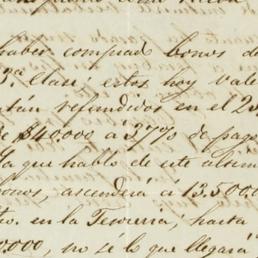 haber comprado bonos de
3ª clase; estos hoy vale
refundidos en el 2
de $40.000 á 37% de pago
que hablo de este
bonos, ascenderá á 13.500.0
en la Tesorería, hasta
0.000, no sé lo que llegará